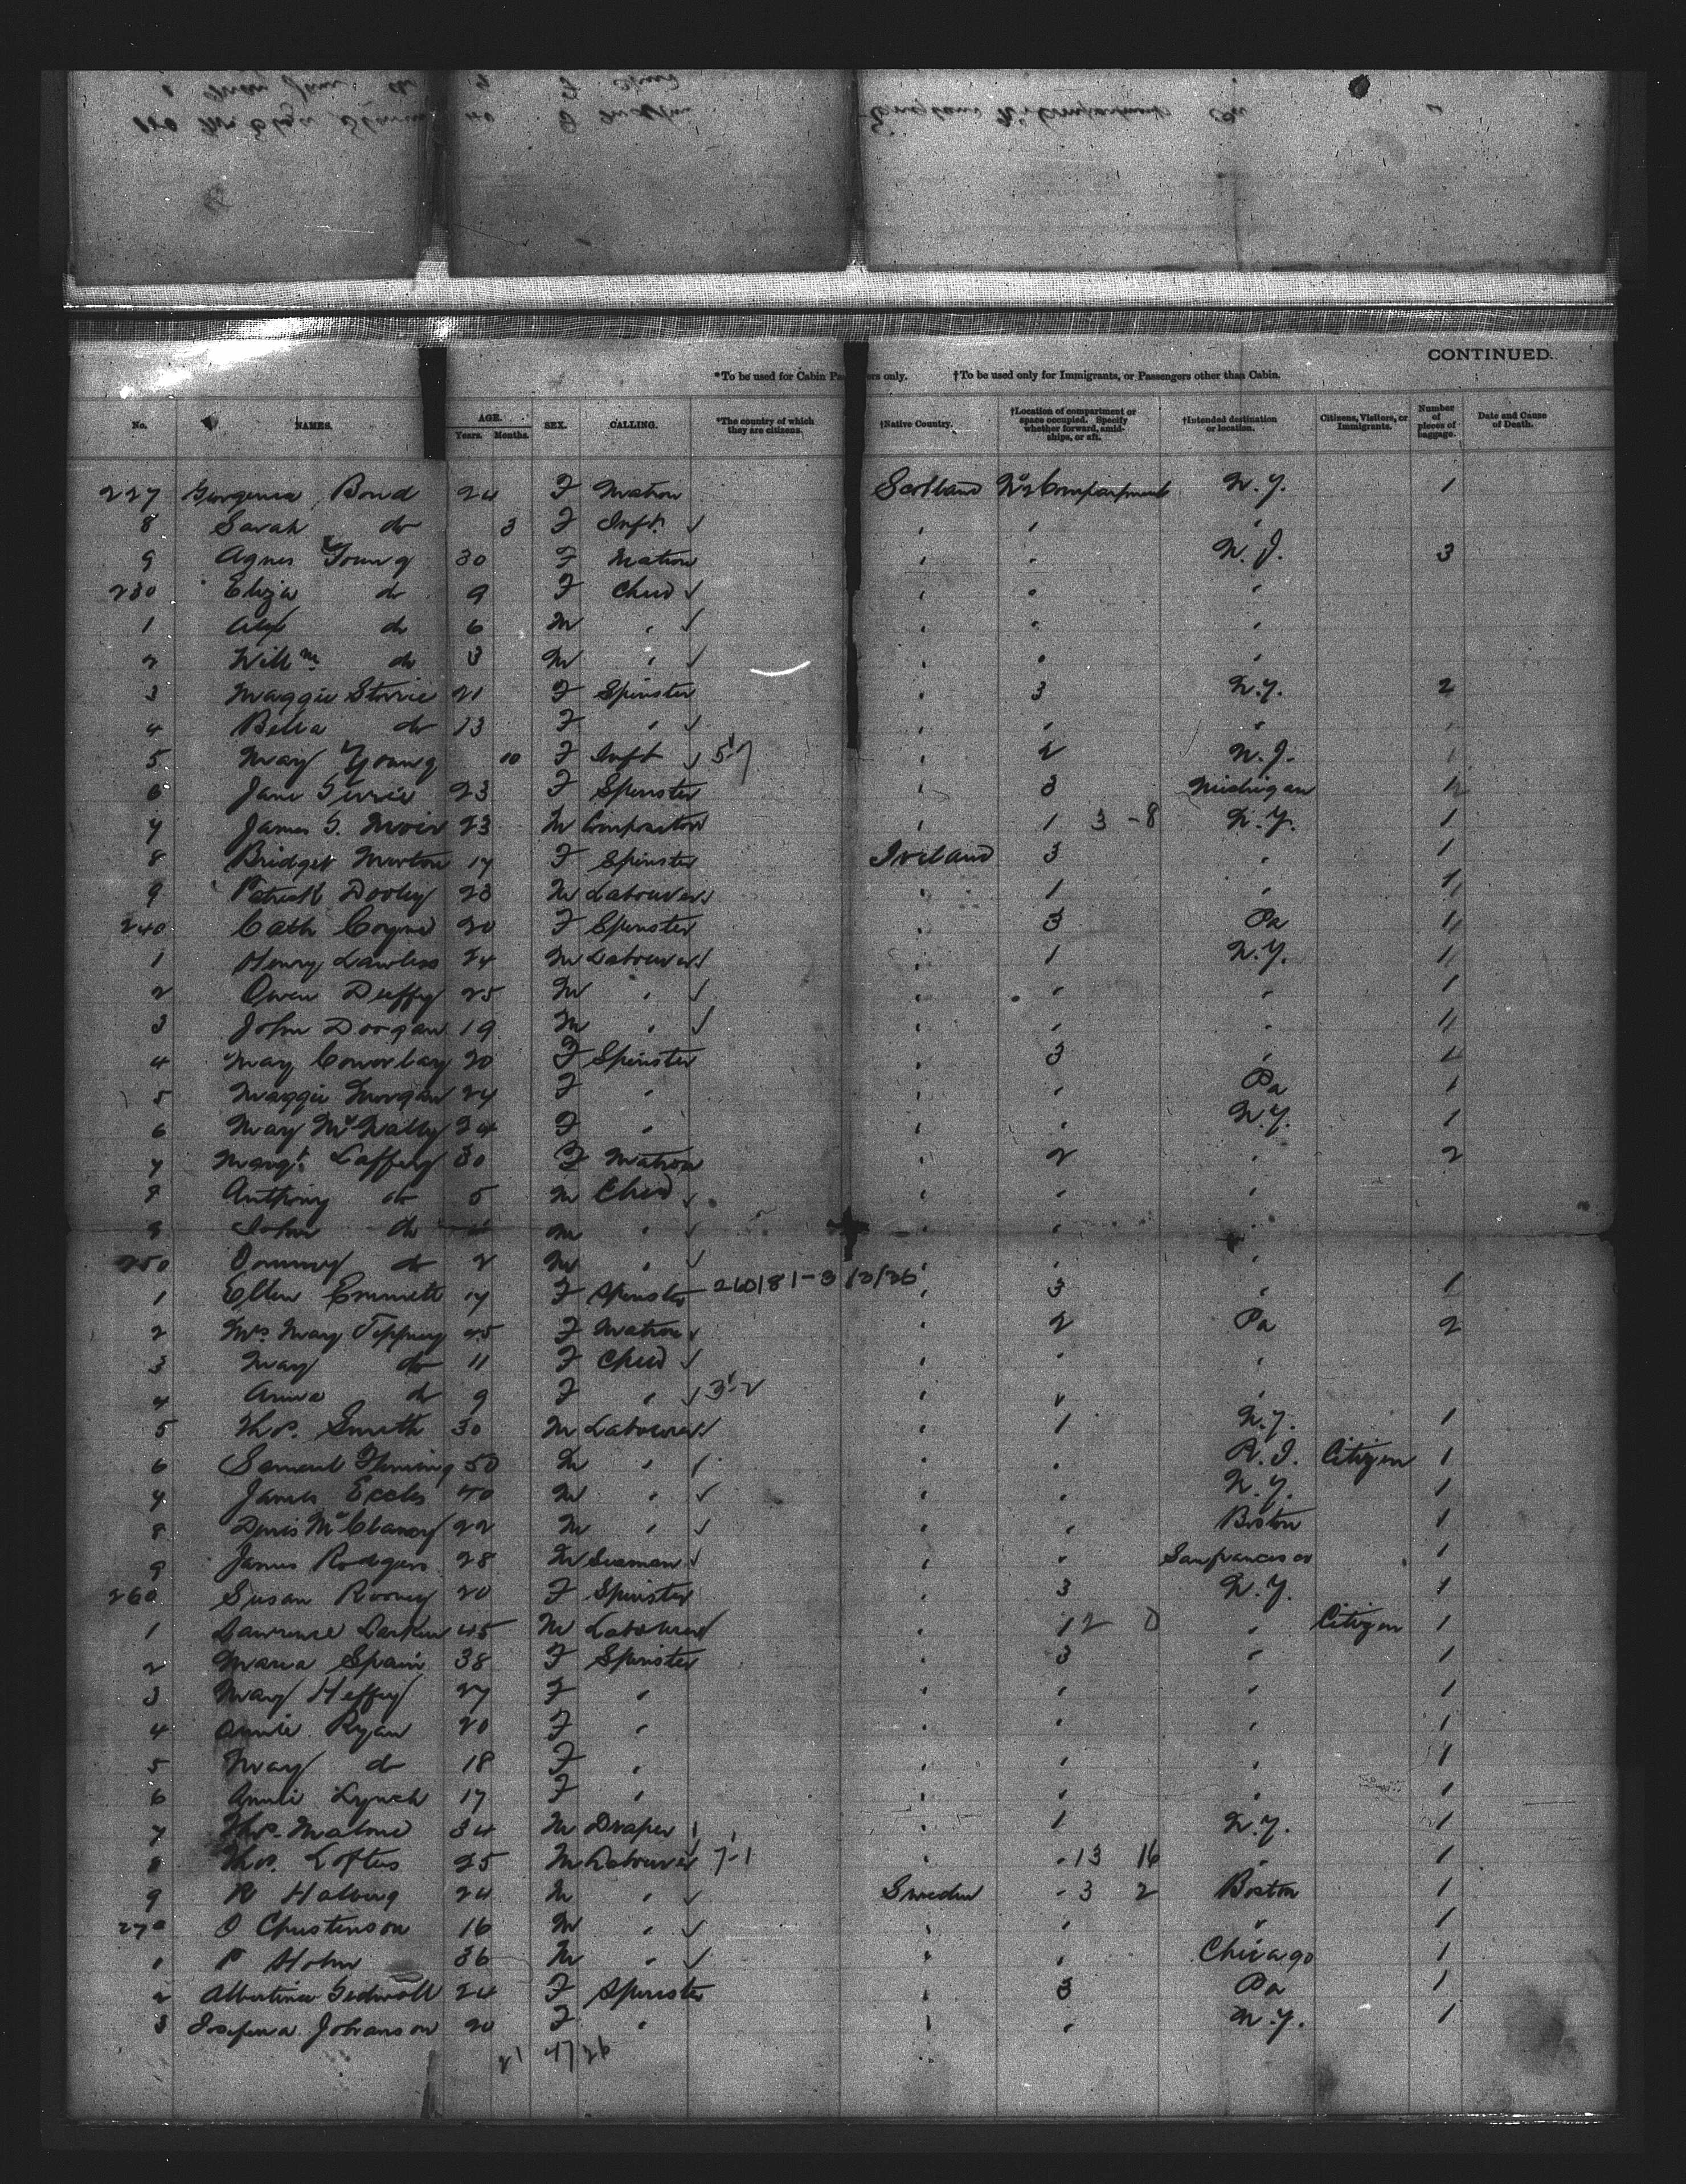 CONTINUED.
*To be used for Cabin Pa ers only. †To be used only for Immigrants, or Passengers other than Cabin.
No. NAMES. AGE. Years. Months. SEX. CALLING. *The country of which they are citizens. †Native Country. †Location of compartment or space occupied. Specify whether forward, amidships, or aft. †Intended destination or location. Citizens, Visitors, or Immigrants. Number of pieces of baggage. Date and Cause of Death.
227 Georgenia Bond 24 F Matron Scotland No 2 Compartment N.Y. 1
8 Sarah do 3 F Inft ✓ " " "
9 Agnes Young 30 F Matron " " N.J. 3
230 Eliza do 9 F Child ✓ " " "
1 Alex do 6 M " ✓ " " "
2 Willm do 3 M " ✓ " " "
3 Maggie Storrie 21 F Spinster " 3 N.Y. 2
4 Bella do 13 F " ✓ " " "
5 May Young 10 F Inft ✓ 5-7 " 2 N.J.
6 Jane 23 F Spinster " 3 Michigan 1
7 James G. Moir 23 M Compositor " 1 3 - 8 N.Y. 1
8 Bridget Morton 17 F Spinster Ireland 3 " 1
9 Patrick Dooley 23 M Labourer ✓ " 1 " 1
240 Cath Coyne 20 F Spinster " 3 Pa 1
1 Henry Lawless 24 M Labourer ✓ " 1 N.Y. 1
2 Owen Duffy 25 M " ✓ " " " 1
3 John Doogan 19 M " ✓ " " " 1
4 May 20 F Spinster " 3 " 1
5 Maggie Morgan 24 F " " " Pa 1
6 May McNally 24 F " " " N.Y. 1
7 Margt Laffery 30 F Matron " 2 " 2
8 Anthony do 5 M Child ✓ " " "
9 John do M " ✓ " " "
250 Dominy do 2 M " ✓ " " "
1 Ellen Emmett 17 F Spinster " 3 " 1
2 Mrs Mary 25 F Matron ✓ " 2 Pa 2
3 May do 11 F Child ✓ " " "
4 Anna do 9 F " ✓ 3-2 " " "
5 Thos. Smith 30 M Labourer ✓ " 1 N.Y. 1
6 Samuel Fleming 50 M " " " R.I. Citizen 1
7 James Eccles 40 M " ✓ " " N.Y. 1
8 Denis McClancy 22 M " ✓ " " Boston 1
9 James Rodgers 28 M Seaman ✓ " " Sanfrancisco 1
260 Susan Rooney 20 F Spinster " 3 N.Y. 1
1 Lawrence Larkin 45 M Labourer " 1 2 0 " Citizen 1
2 Maria Spain 38 F Spinster " 3 " 1
3 Mary Heffey 27 F " " " " 1
4 Annie Ryan 20 F " " " " 1
5 May do 18 F " " " " 1
6 Annie Lynch 17 F " " " " 1
7 Thos. Malone 34 M Draper " 1 N.Y. 1
8 Thos. Loftus 25 M Labourer 7-1 " " 13 16 " 1
9 R Halberg 24 M " ✓ Sweden " 3 2 Boston 1
270 O Christenson 16 M " ✓ " " " 1
1 P Holm 36 M " ✓ " " Chicago 1
2 Albertina Sedwall 24 F Spinster " 3 Pa 1
3 Josefina Johanson 20 F " " " N.Y. 1
21 47/26